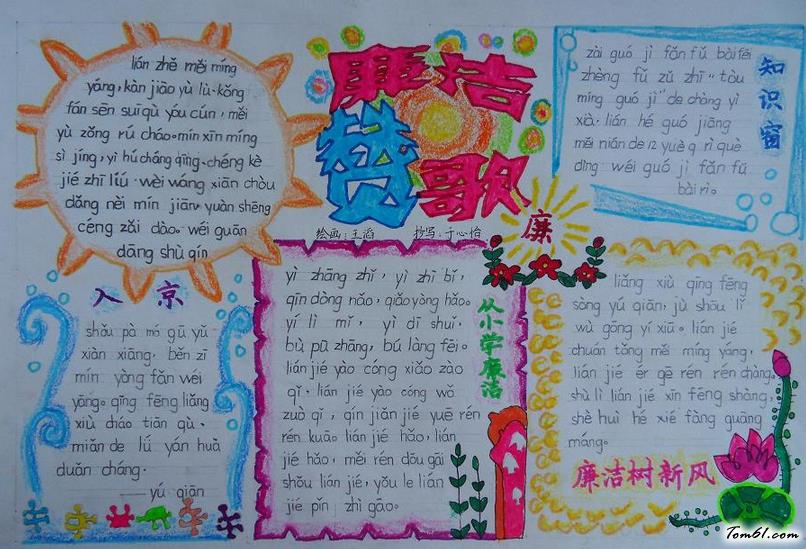 lián zhě měi míng
yáng, kàn jiāo yù lù. kǒng
fán sēn suī qù yóu cún, měi
yù zǒng rú cháo. mín xīn míng
sì jíng, yì hú cháng qīng. chéng kè
jié zhī liú. wèi wáng xiān chòu
dǎng nèi mín jiān yuàn shēng
céng zǎi dào. wéi guān
dāng shù qín
廉洁
赞歌
绘画:王滔 抄写:于心怡
zài guó jì fǎn fǔ bài fēi
zhèng fǔ zǔ zhī "tòu
míng guó jì" de chàng yì
xià. lián hé guó jiāng
měi nián de 12 yuè 9 rì què
dìng wéi guó jì fǎn fǔ
bài rì。
知识窗
入京
shǒu pà mó gū yǔ
xiàn xiāng, běn zī
mín yòng fǎn wéi
yāng。qīng fēng liǎng
xiù cháo tiān qù.
miǎn de lǘ yán huà
duǎn cháng.
——yú qiān
yì zhāng zhǐ, yì zhī bǐ,
qín dòng nǎo, qiǎo yòng hǎo。
yí lì mǐ, yì dī shuǐ.
bù pū zhāng, bú làng fèi。
lián jié yào cóng xiǎo zào
qǐ. lián jié yào cóng wǒ
zuò qǐ, qín jiǎn jié yuē rén
rén kuā。lián jié hǎo, lián
jié hǎo, měi rén dōu gāi
shǒu lián jié, yǒu le lián
jié pǐn zhì gāo。
从小学廉洁
廉
liǎng xiù qīng fēng
sòng yú qiān, jù shōu lǐ
wù gōng yí xiū。lián jié
chuán tǒng měi míng yáng,
lián jié ér gē rén rén chàng。
shù lì lián jié xīn fēng shàng,
shè huì hé xié fàng guāng
máng。
廉洁树新风
Tom61.com